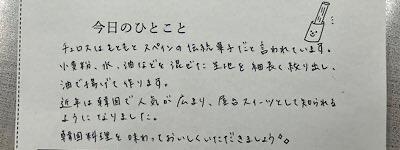 今日のひとこと
チュロスはもともとスペインの伝統菓子だと言われています。
小麦粉、水、油などを混ぜた生地を細長く絞り出し、
油で揚げて作ります。
近年は韓国で人気が広まり、屋台スイーツとして知られる
ようになりました。
韓国料理を味わっておいしくいただきましょう。